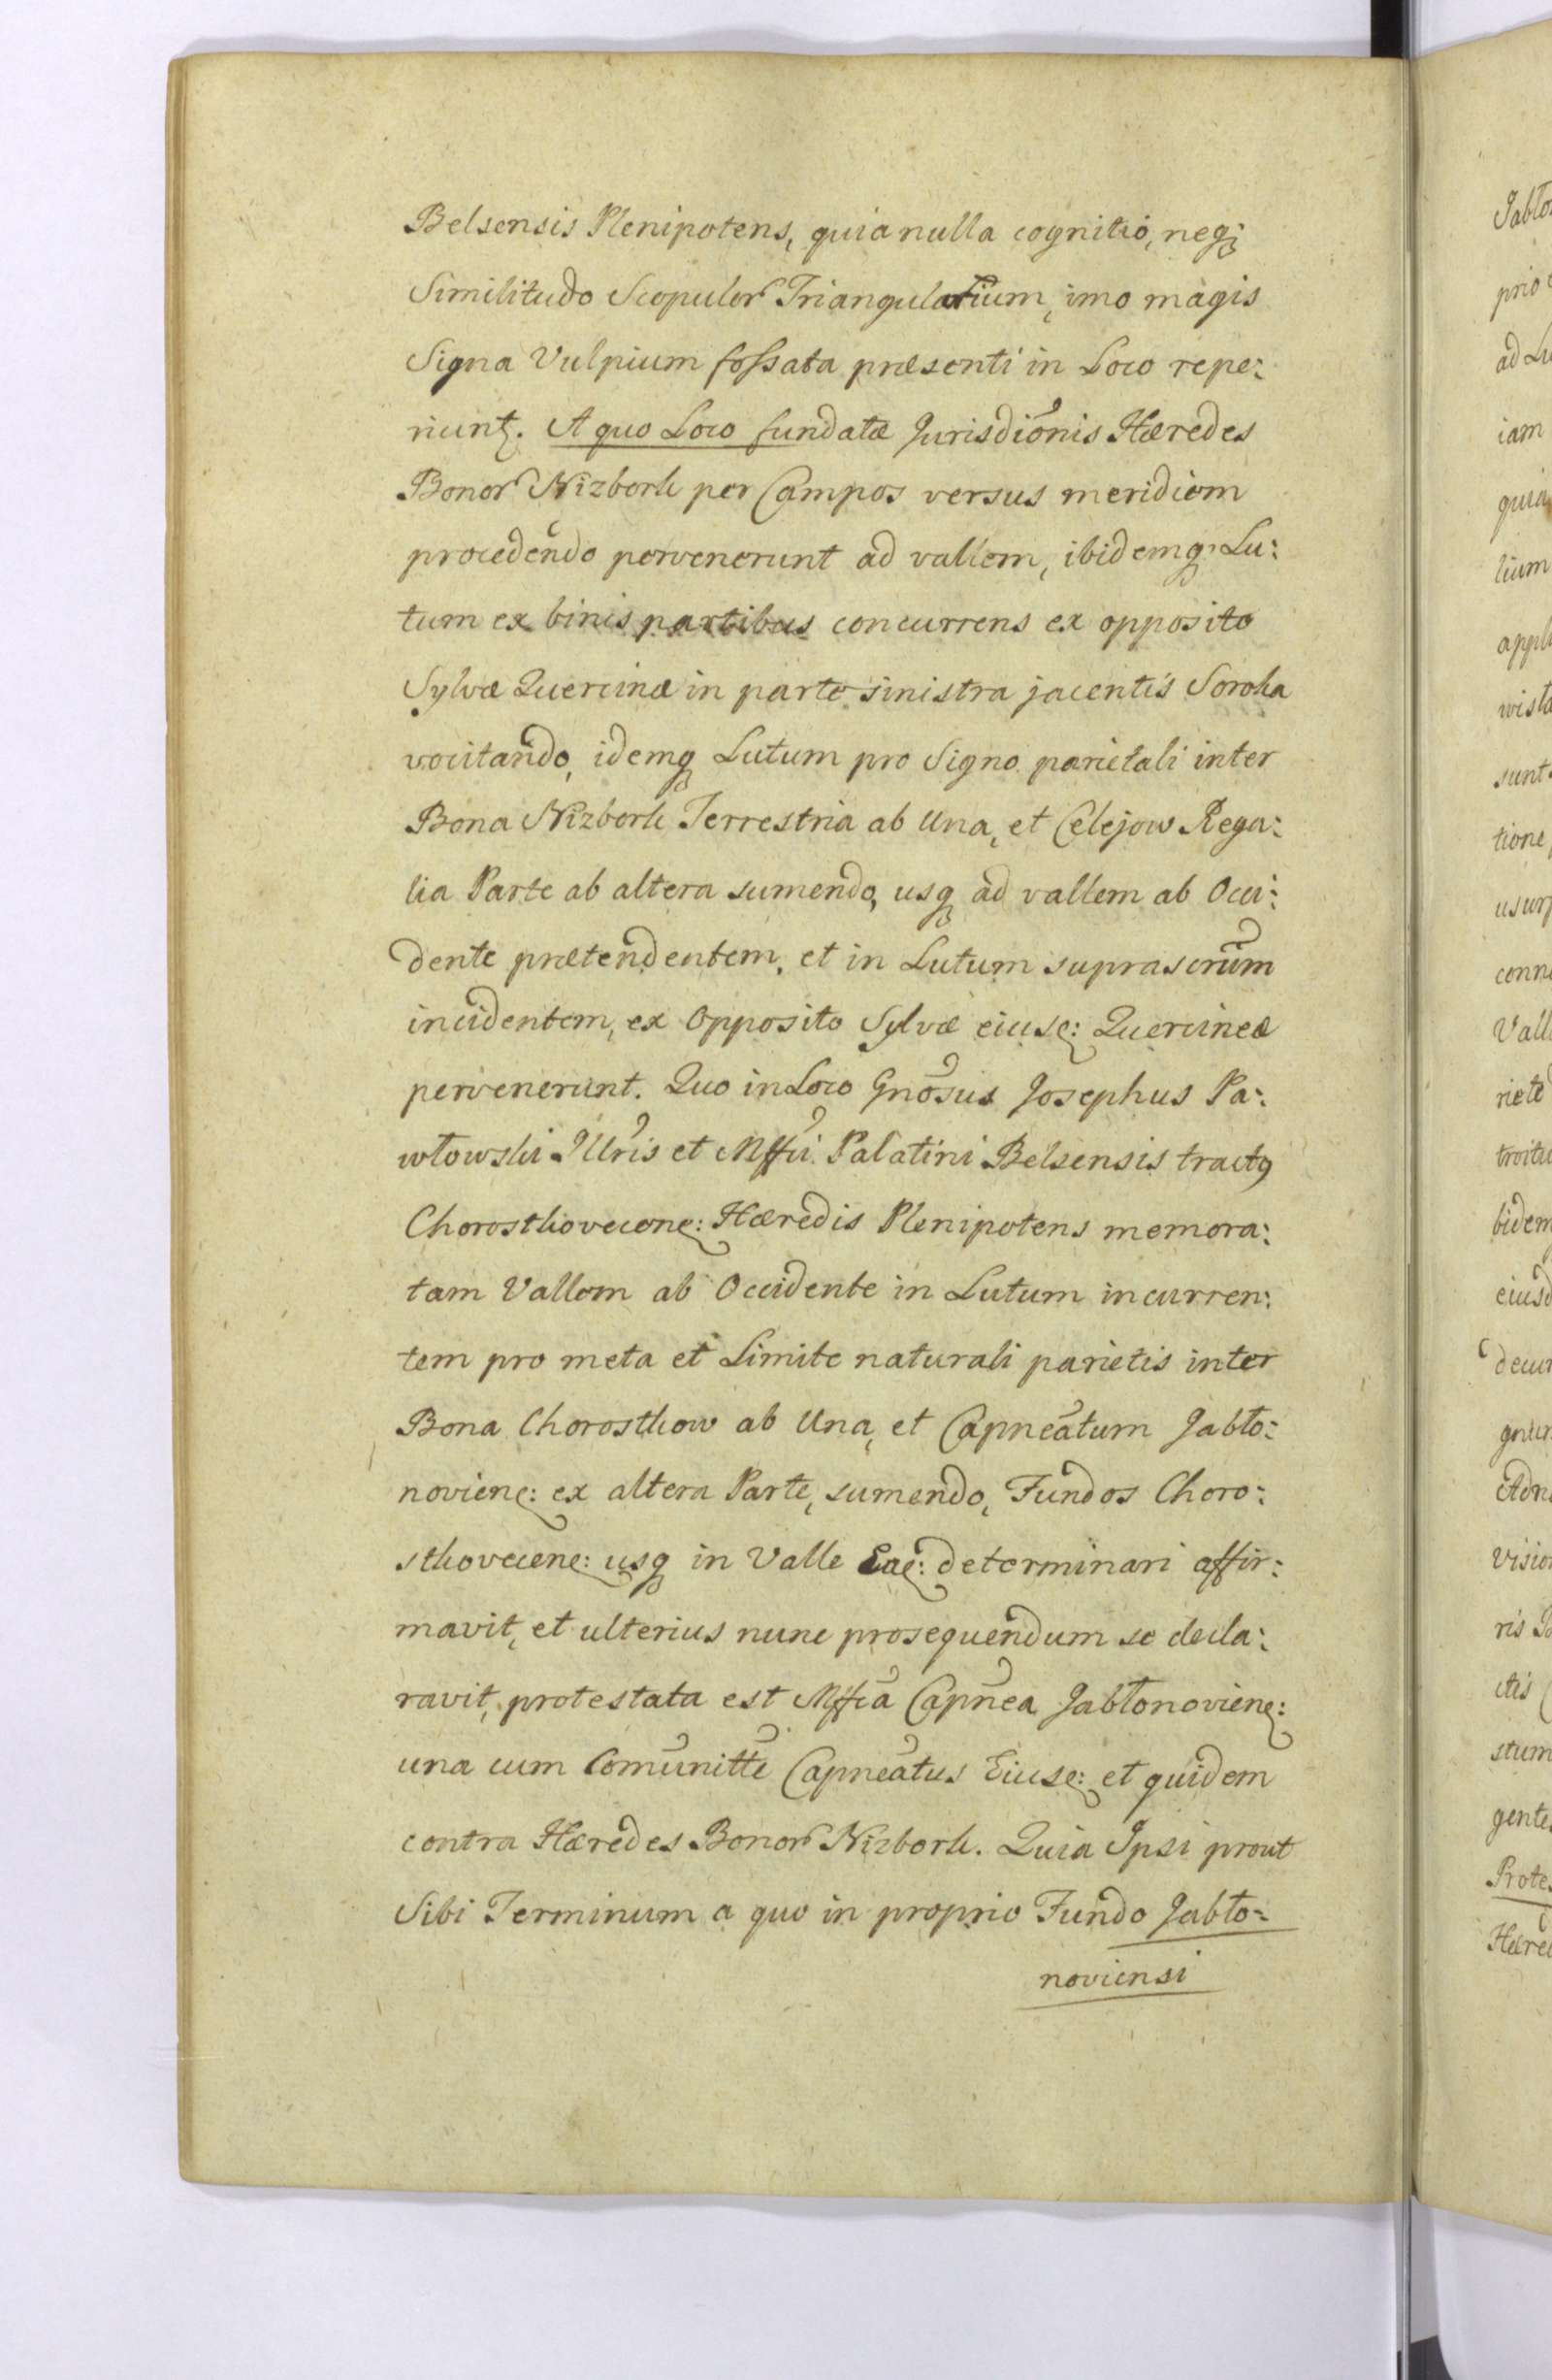 Belsensis Plenipotens, quia nulla cognitio, neq;
Similitudo Scopulor Triangularium, imo magis
Signa Vulpium fossata præsenti in Loco repe:
riunt. A quo Loco fundatæ Jurisdionis Hæredes
Bonor Nizbork per Campos versus meridiem
procedendo pervenerunt ad vallem, ibidemq Lu:
tum ex binis partibus concurrens ex opposito
Sylvæ Quercinæ in parte sinistra jacentis Soroka
vocitando, idemq Lutum pro Signo parietali inter
Bona Nizbork Terrestria ab Una, et Celejow Rega:
lia Parte ab altera sumendo, usq ad vallem ab Occi:
dente prætendentem, et in Lutum suprascrum
incidentem, ex Opposito Sylvæ eiusę: Quercineæ
pervenerunt. Quo in Loco Gnosus Josephus Pa:
włowski Illris et Mffci Palatini Belsensis tractq
Chorostkoveconę: Hæredis Plenipotens memora:
tam Vallem ab Occidente in Lutum incurren:
tem pro meta et Limite naturali parietis inter
Bona Chorostkow ab Una, et Capneatum Jabło:
novienę: ex altera Parte, sumendo, Fundos Choro:
stkovecenę: usq in Valle Eaę: determinari affir:
mavit, et ulterius nunc prosequendum se decla:
ravit, protestata est Mffca Capnea Jabłonovienę:
una cum Comunitte Capneatus Eiusę: et quidem
contra Hæredes Bonor Nizbork. Quia Ipsi prout
Sibi Terminum a quo in proprio Fundo Jabło=
noviensi
Jabło
prio
ad Lu
iam
quia
lium
appli
wista
sunt.
tione
usurp
conn
Vall
riete
troitu
bidem
eiusd
decur
gnun
Adn
Vision
ris
ctis
stum
gente
Prote
Hære